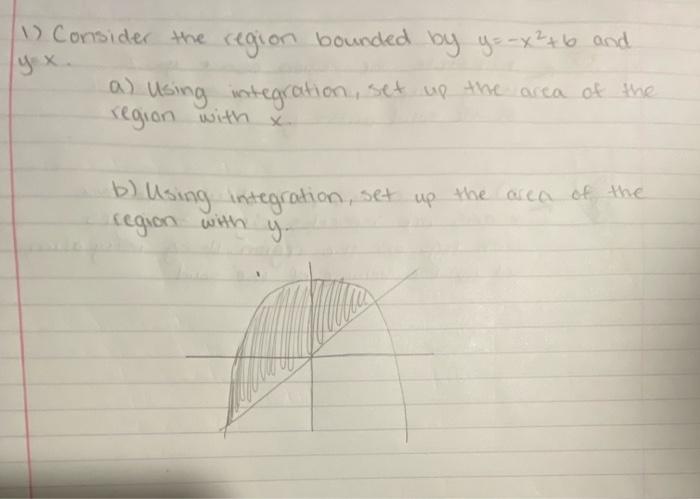 1) Consider the region bounded by y=-x²+6 and
y=x.
a) Using integration, set up the area of the
region with x.
b) Using integration, set up the area of the
region with y.